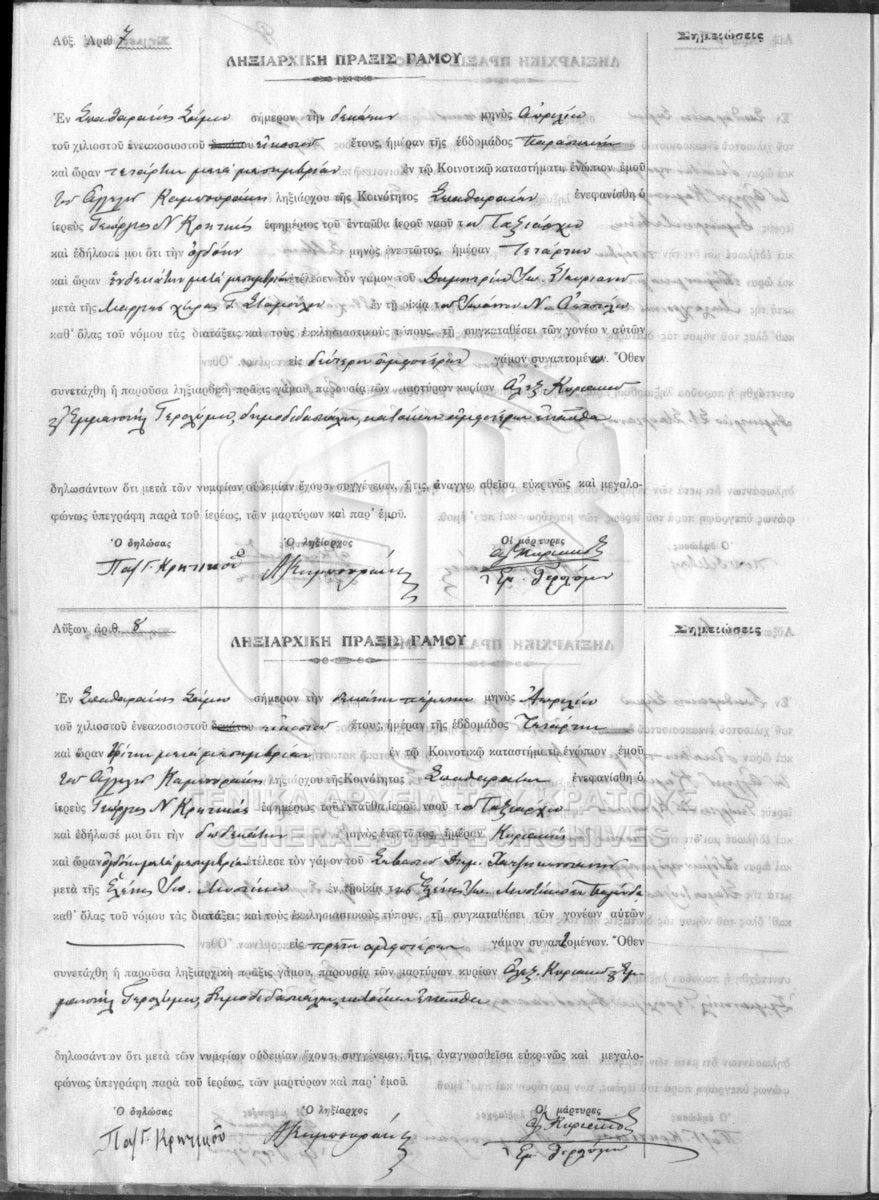 Αὔξ. Ἀριθ. 7
Σημειώσεις
ΛΗΞΙΑΡΧΙΚΗ ΠΡΑΞΙΣ ΓΑΜΟΥ
Ἐν Σπαθαραίοις Σάμου σήμερον τὴν δεκάτην μηνὸς Ἀπριλίου
τοῦ χιλιοστοῦ ἐνεακοσιοστοῦ εἰκοστοῦ ἔτους, ἡμέραν τῆς ἑβδομάδος Παρασκευὴν
καὶ ὥραν τετάρτην μετὰ μεσημβρίαν ἐν τῷ Κοινοτικῷ καταστήματι ἐνώπιον ἐμοῦ
τοῦ Ἀγγέλου Καμπουράκη ληξιάρχου τῆς Κοινότητος Σπαθαραίων ἐνεφανίσθη ὁ
ἱερεὺς Γεώργιος Ν Κρητικὸς ἐφημέριος τοῦ ἐνταῦθα ἱεροῦ ναοῦ τοῦ Ταξιάρχου
καὶ ἐδήλωσέ μοι ὅτι τὴν ὀγδόην μηνὸς ἐνεστῶτος, ἡμέραν Τετάρτην
καὶ ὥραν ἑνδεκάτην μετὰ μεσημβρίαν ἐτέλεσεν τὸν γάμον τοῦ Δημητρίου Ἰω. Σταυριανοῦ
μετὰ τῆς χήρας Γ. Σταμούλου ἐν τῇ οἰκίᾳ τοῦ Ἰωάννου Ν.
καθ' ὅλας τοῦ νόμου τὰς διατάξεις καὶ τοὺς ἐκκλησιαστικοὺς τύπους, τῇ συγκαταθέσει τῶν γονέων αὐτῶν
εἰς δεύτερον ἀμφοτέρων γάμον συναπτομένων. Ὅθεν
συνετάχθη ἡ παροῦσα ληξιαρχικὴ πρᾶξις γάμου, παρουσίᾳ τῶν μαρτύρων κυρίων Ἀλεξ. Κυριακοῦ
& Ἐμμανουὴλ Γερολύμου, δημοδιδασκάλων, κατοίκων ἀμφοτέρων ἐνταῦθα
δηλωσάντων ὅτι μετὰ τῶν νυμφίων οὐδεμίαν ἔχουσι συγγένειαν, ἥτις, ἀναγνωσθεῖσα εὐκρινῶς καὶ μεγαλο-
φώνως ὑπεγράφη παρὰ τοῦ ἱερέως, τῶν μαρτύρων καὶ παρ' ἐμοῦ.
Ὁ δηλώσας Ὁ ληξίαρχος Οἱ μάρτυρες
Παπ Γ. Κρητικοῦ ΑΚαμπουράκης Ἀλ Κυριακοῦ
Ἐμ. Γερολύμου
Αὔξων ἀριθ. 8
Σημειώσεις
ΛΗΞΙΑΡΧΙΚΗ ΠΡΑΞΙΣ ΓΑΜΟΥ
Ἐν Σπαθαραίοις Σάμου σήμερον τὴν δεκάτην πέμπτην μηνὸς Ἀπριλίου
τοῦ χιλιοστοῦ ἐνεακοσιοστοῦ εἰκοστοῦ ἔτους, ἡμέραν τῆς ἑβδομάδος Τετάρτην
καὶ ὥραν τρίτην μετὰ μεσημβρίαν ἐν τῷ Κοινοτικῷ καταστήματι ἐνώπιον ἐμοῦ
τοῦ Ἀγγέλου Καμπουράκη ληξιάρχου τῆς Κοινότητος Σπαθαραίων ἐνεφανίσθη ὁ
ἱερεὺς Γεώργιος Ν Κρητικὸς ἐφημέριος τοῦ ἐνταῦθα ἱεροῦ ναοῦ τοῦ Ταξιάρχου
ΓΕΝΙΚΑ ΑΡΧΕΙΑ ΤΟΥ ΚΡΑΤΟΥΣ
καὶ ἐδήλωσέ μοι ὅτι τὴν δωδεκάτην μηνὸς ἐνεστῶτος, ἡμέραν Κυριακὴν
GENERAL STATE ARCHIVES
καὶ ὥραν ὀγδόην μετὰ μεσημβρίαν ἐτέλεσε τὸν γάμον τοῦ Δημ.
μετὰ τῆς Ἑλένης Ἰω. ἐν τῇ οἰκίᾳ τῆς Ἑλένης Ἰω.
καθ' ὅλας τοῦ νόμου τὰς διατάξεις καὶ τοὺς ἐκκλησιαστικοὺς τύπους, τῇ συγκαταθέσει τῶν γονέων αὐτῶν
εἰς πρῶτον ἀμφοτέρων γάμον συναπτομένων. Ὅθεν
συνετάχθη ἡ παροῦσα ληξιαρχικὴ πρᾶξις γάμου, παρουσίᾳ τῶν μαρτύρων κυρίων Ἀλεξ. Κυριακοῦ & Ἐμ-
μανουὴλ Γερολύμου, δημοδιδασκάλων, κατοίκων ἐνταῦθα
δηλωσάντων ὅτι μετὰ τῶν νυμφίων οὐδεμίαν ἔχουσι συγγένειαν, ἥτις, ἀναγνωσθεῖσα εὐκρινῶς καὶ μεγαλο-
φώνως ὑπεγράφη παρὰ τοῦ ἱερέως, τῶν μαρτύρων καὶ παρ' ἐμοῦ.
Ὁ δηλώσας Ὁ ληξίαρχος Οἱ μάρτυρες
Παπ Γ. Κρητικοῦ ΑΚαμπουράκης Ἀλ Κυριακοῦ
Ἐμ. Γερολύμου